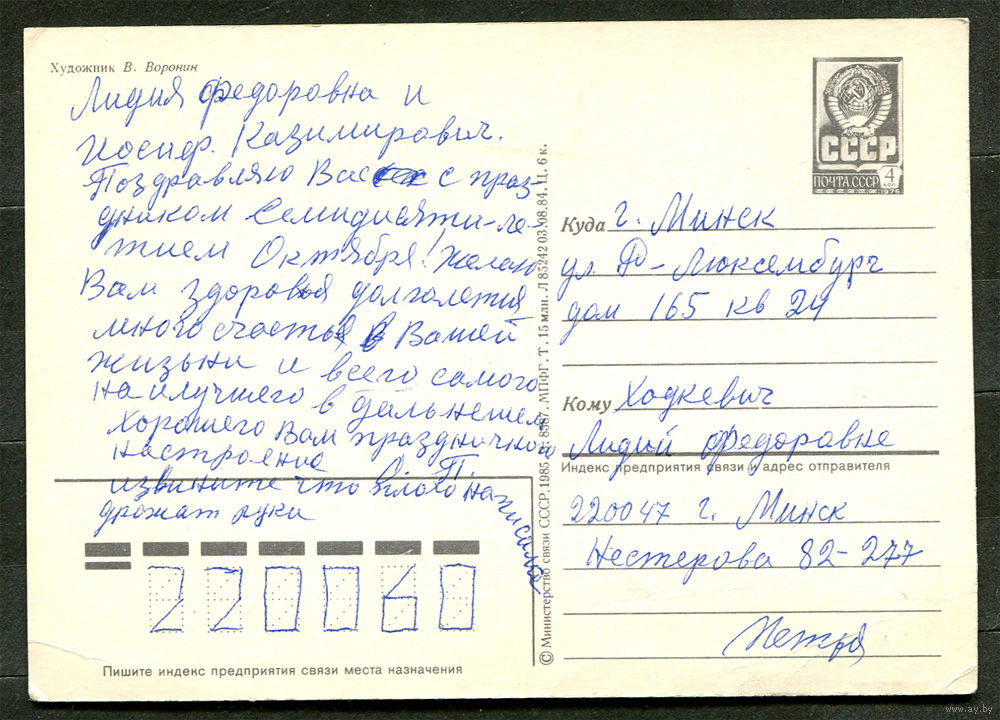 Художник В. Воронин
Лидия Федоровна и
Иосиф. Казимирович.
Поздравляю Вас с праз-
дником Семидисяти-ле-
тием Октября! Желаю
Вам здоровья долголетия
много счастья в Вашей
жизьни и всего самого
наилучшего в дальнешем
хорошего Вам праздничного
настроение
извините что плохо написала
дрожат руки
220060
Пишите индекс предприятия связи места назначения
© Министерство связи СССР, 1985 З. 8587. МПФГ. Т. 15 млн. Л 85242 03.08.84. Ц. 6 к.
СССР
ПОЧТА СССР 4 КОП
1976
Куда г. Минск
ул. Р-Люксембург
дом 165 кв 24
Кому Ходкевич
Лидий Федоровне
Индекс предприятия связи и адрес отправителя
220047 г. Минск
Нестерова 82-277
www.ay.by